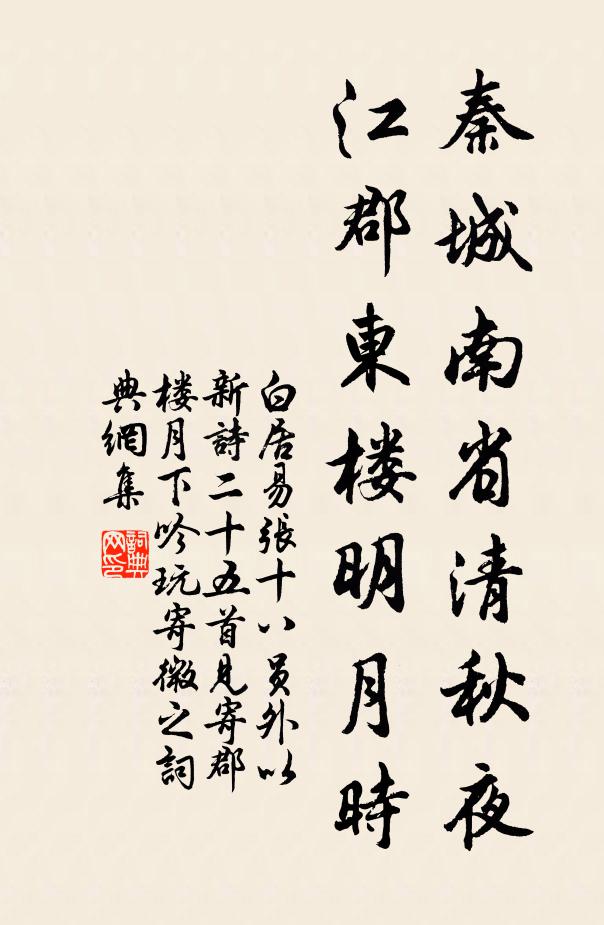 秦城南省清秋夜
江郡東楼明月時
白居易張十八员外以
新詩二十五首見寄郡
楼月下吟玩寄微之詞
典網集
詞典
网印